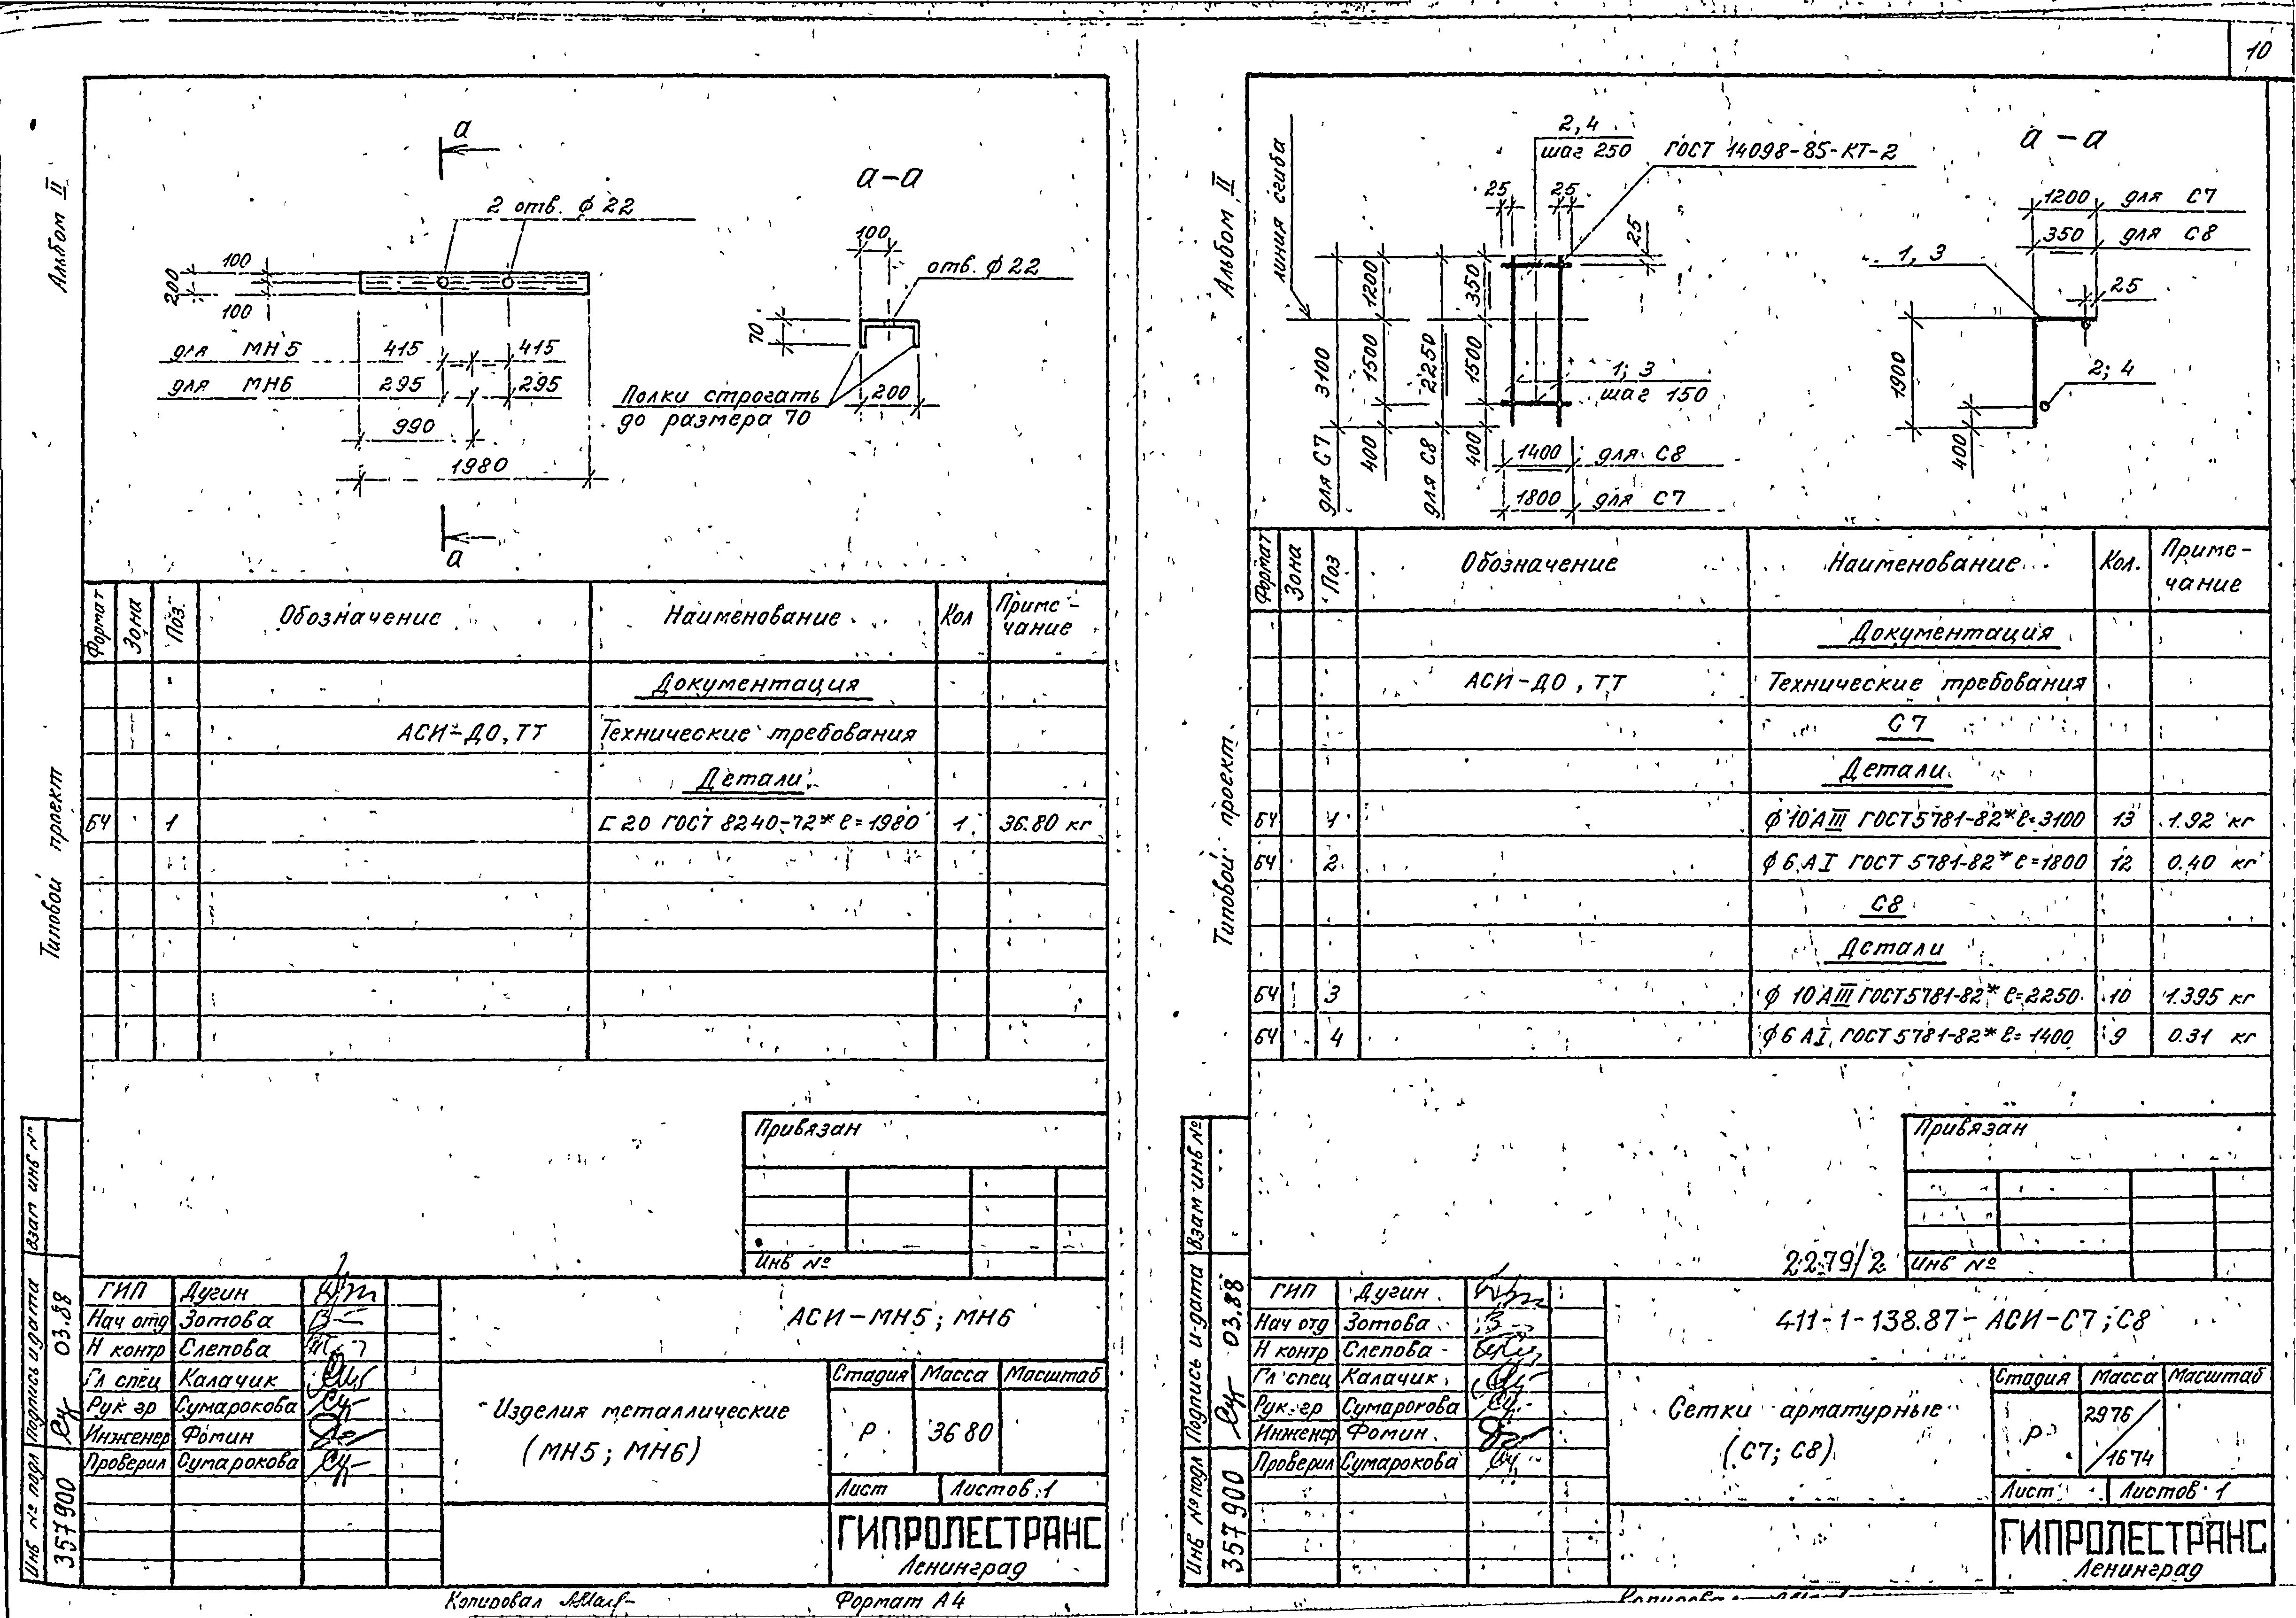 10
Альбом II
Типовой проект
а
а
а-а
2 отв. ϕ 22
100
200
100
для МН5 415 415
для МН6 295 295
990
1980
100
отв. ϕ 22
70
200
Полки строгать
до размера 70
Формат Зона Поз. Обозначение Наименование Кол Приме-
чание
Документация
АСИ-ДО, ТТ Технические требования
Детали
БЧ 1 [ 20 ГОСТ 8240-72* ℓ=1980 1 36.80 кг
Привязан
Инв №
Взам инв №
Подпись и дата 03.88
Инв № подл 357900
ГИП Дугин
Нач отд Зотова
Н контр Слепова
Гл спец Калачик
Рук гр Сумарокова
Инженер Фомин
Проверил Сумарокова
АСИ-МН5; МН6
Изделия металлические
(МН5; МН6)
Стадия Масса Масштаб
Р 36 80
Лист Листов 1
ГИПРОЛЕСТРАНС
Ленинград
Копировал
Формат А4
Альбом II
Типовой проект.
линия сгиба
2,4
шаг 250
ГОСТ 14098-85-КТ-2
25 25
25
для С7 3100
1200
1500
400
для С8 2250
350
1500
400
1; 3
шаг 150
1400 для С8
1800 для С7
а-а
1200 для С7
350 для С8
1, 3
25
1900
2; 4
400
Формат Зона Поз Обозначение Наименование Кол. Приме-
чание
Документация
АСИ-ДО, ТТ Технические требования
С7
Детали
БЧ 1 ϕ 10 АIII ГОСТ 5781-82* ℓ=3100 13 1.92 кг
БЧ 2 ϕ 6 АI ГОСТ 5781-82* ℓ=1800 12 0.40 кг
С8
Детали
БЧ 3 ϕ 10 АIII ГОСТ 5781-82* ℓ=2250 10 1.395 кг
БЧ 4 ϕ 6 АI ГОСТ 5781-82* ℓ=1400 9 0.31 кг
Привязан
2279/2
Инв №
Взам инв №
Подпись и дата 03.88
Инв № подл 357900
ГИП Дугин
Нач отд Зотова
Н контр Слепова
Гл спец Калачик
Рук. гр Сумарокова
Инженер Фомин
Проверил Сумарокова
411-1-138.87-АСИ-С7;С8
Сетки арматурные
(С7; С8)
Стадия Масса Масштаб
Р 29 76 / 16 74
Лист Листов 1
ГИПРОЛЕСТРАНС
Ленинград